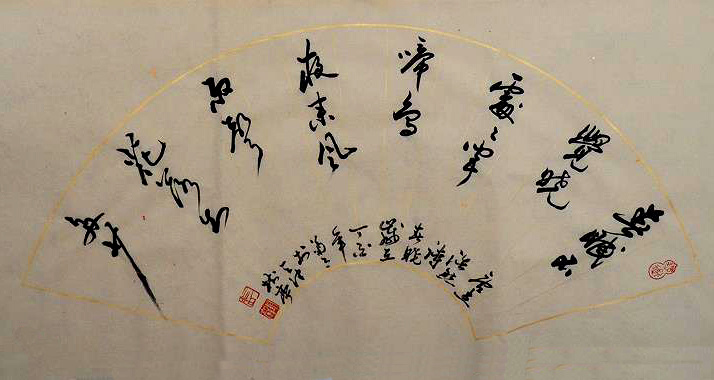 春眠不
覺曉
處々聞
啼鳥
夜来風
雨聲
花落知
多少
唐孟
浩然
春曉
歲在
丁亥
年